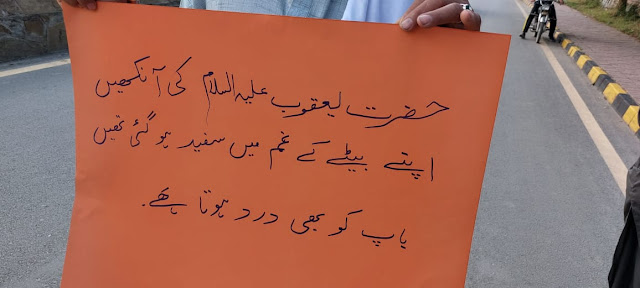 حضرت یعقوب علیہ السلام کی آنکھیں
اپنے بیٹے کے غم میں سفید ہو گئی تھیں
باپ کو بھی درد ہوتا ہے۔